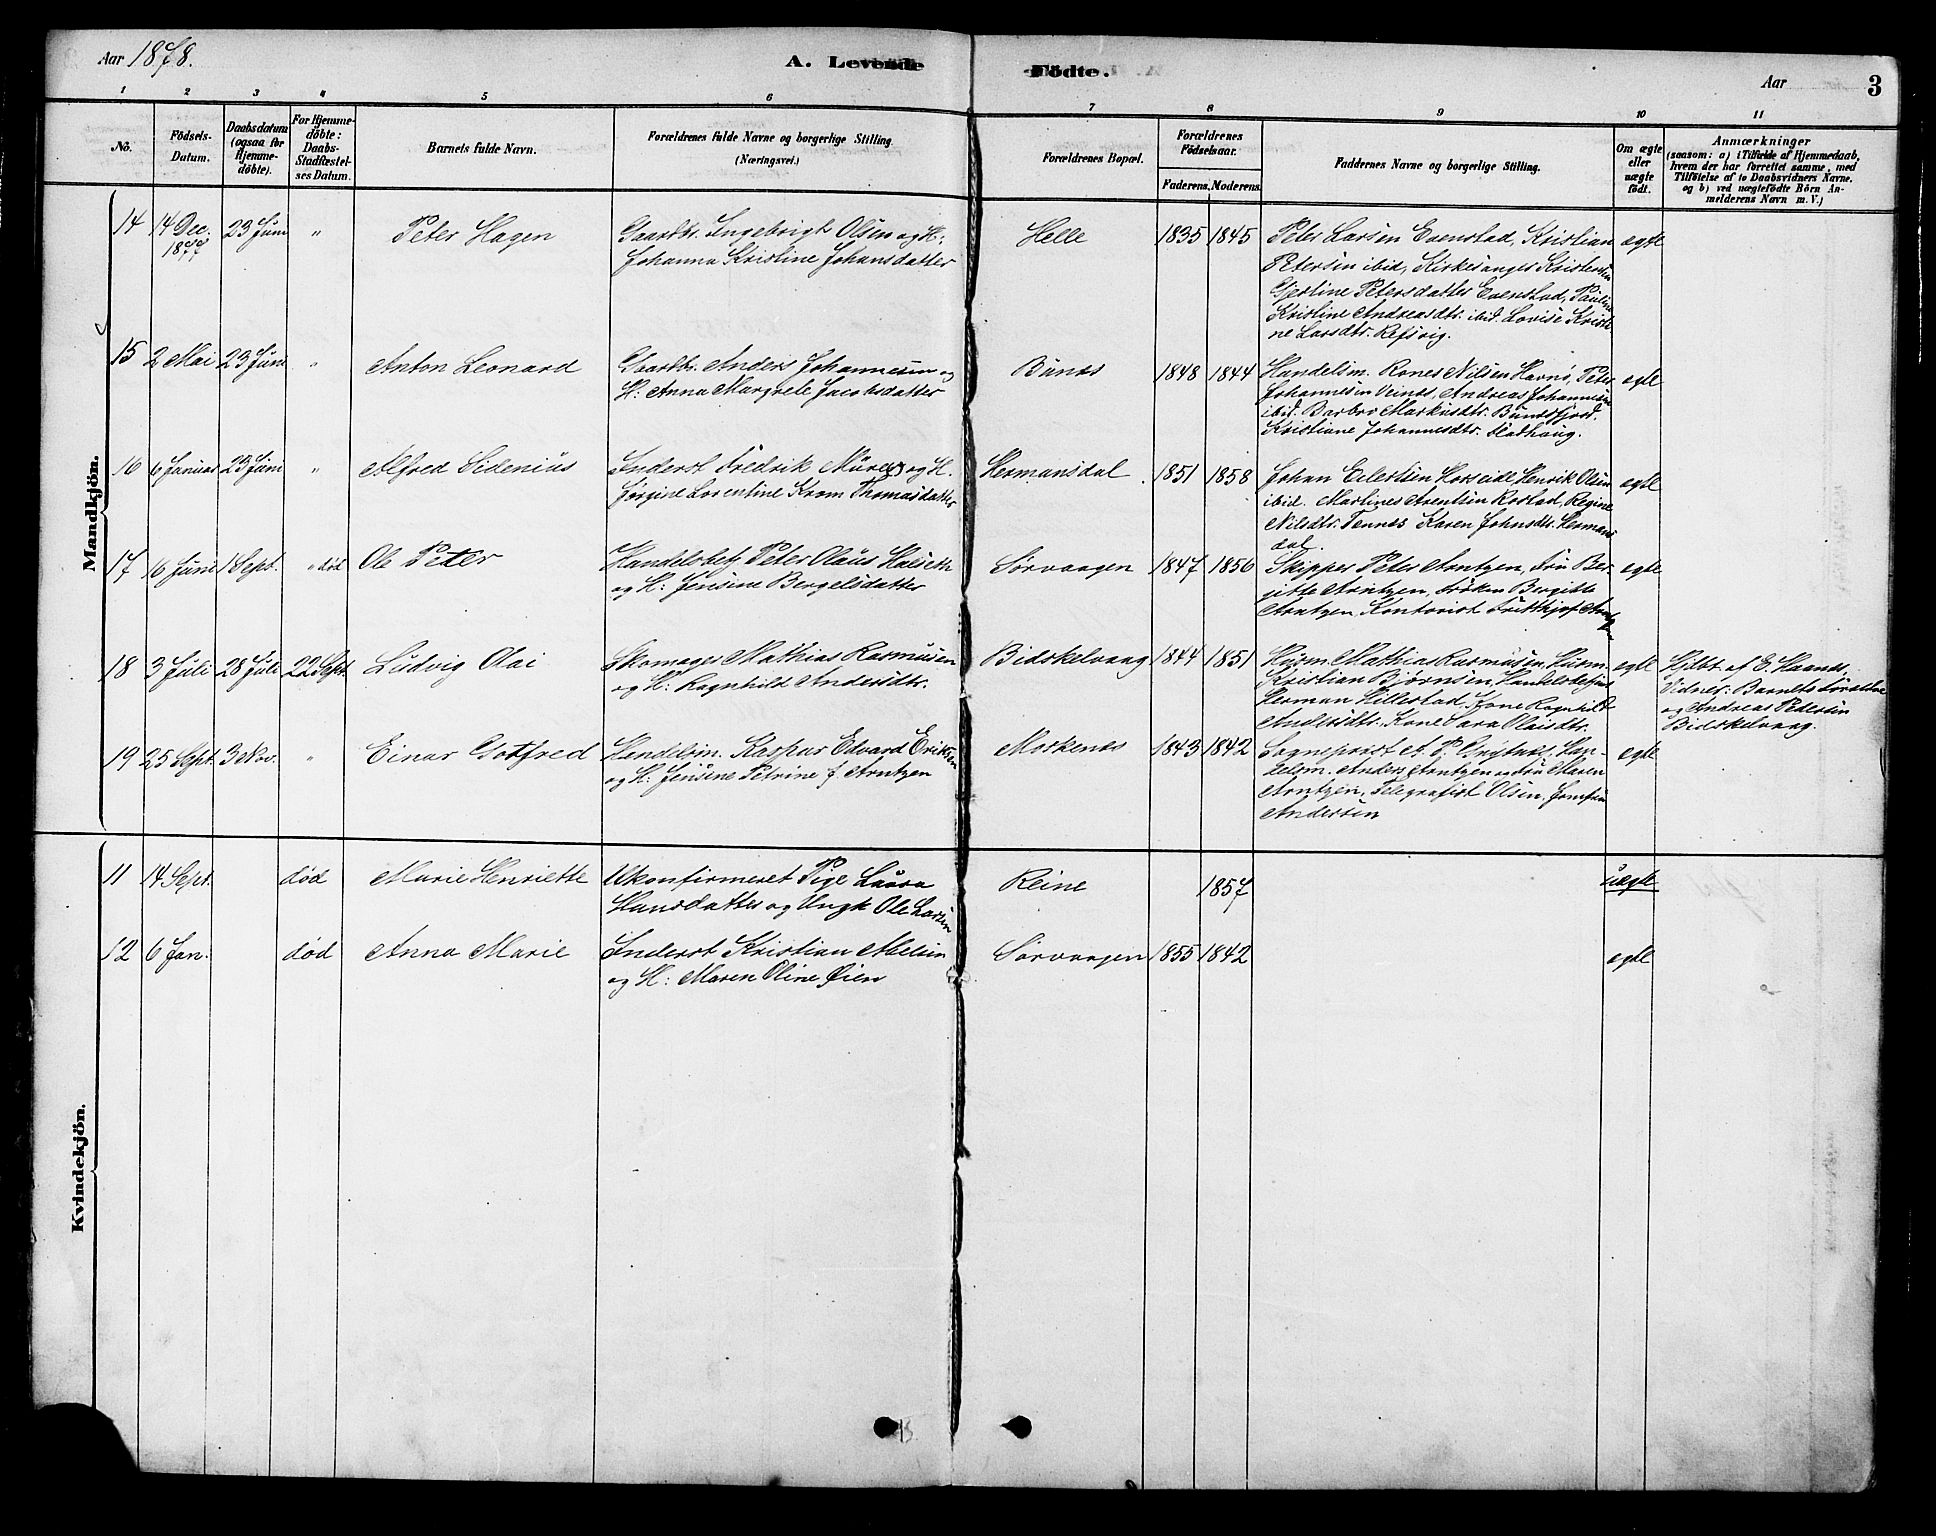 Aar 1878.
A. Levende Födte.
Aar
3
1 2 3 4 5 6 7 8 9 10 11
No.
Födsels-
Datum.
Daabsdatum
(ogsaa for
Hjemme-
döbte).
For Hjemme-
döbte:
Daabs-
Stadfæstel-
ses Datum.
Barnets fulde Navn.
Forældrenes fulde Navne og borgerlige Stilling
(Næringsvei.)
Forældrenes Bopæl.
Forældrenes
Födselsaar.
Faderens. Moderens.
Faddernes Navne og borgerlige Stilling.
Om ægte
eller
uægte
födt.
Anmærkninger
(saasom: a) i Tilfælde af Hjemmedaab,
hvem der har forrettet samme, med
Tilföielse af to Daabsvidners Navne.
og b) ved uægtefödte Börn An-
melderens Navn m. V.)
Mandkjön.
14
14 Dec.
1877
23 Juni
"
Peter Hagen
Gaardbr. Ingebrigt Olsen og H:
Johanna Kristine Johansdatter
Helle
1835
1845
Peter Larsen Evenstad, Kristian
Petersen ibid, Kirkesanger Kristensen
Gjertine Petersdatter Evenstad, Pauline
Kristine Andreasdtr. ibid. Lovise Kristi
ne Larsdtr. Refsvig.
egte
15
2 Mai
23 Juni
"
Anton Leonard
Gaardbr. Anders Johannesen og
H: Anna Margrete Jacobsdatter
Bunes
1848
1844
Handelsm. Rones Nilsen Havnø, Peter
Johannesen Veines, Andreas Johannesen
ibid. Barbro Markusdtr. Bunesfjord.
Kristiane Johannesdtr. Fladhaug.
egte
16
6 Januar
23 Juni
"
Alfred Sidenius
Inderst Fredrik Mürer og H.
Jørgine Lorentine Krom Thomasdatter
Hermansdal
1851
1858
Johan Eilertsen Hokseide Henrik Olsen
ibid. Martines Arentsen Rostad, Regine
Nilsdtr. Tennes Karen Johnsdtr. Herman
dal.
egte
17
16 Juni
1 Sept.
" død
Ole Peter
Handelsbetj Peter Olaus Halseth
og H: Jensine Bergelsdatter
Sørvaagen
1847
1856
Skipper Peter Arntzen, Fru Ber-
gitte Arntzen, Frøken Bergitte
Arntzen, Kontorist Fritthjof Arntzen
egte
18
3 Juli
28 Juli
22 Sept.
Ludvig Olai
Skomager Mathias Rasmusen
og H: Ragnhild Andersdtr.
Bidskelvaag
1844
1851
Husm. Mathias Rasmusen, Husm.
Kristian Bjørnsen, Handelsbetjent
Herman Hillestad, Kone Ragnhild
Andersdtr., Kone Sara Olaisdtr.
egte
Hjdbt. af E. Haand,
Vidner: Barnets Forældre
og Andreas Pedersen
Bidskelvaag.
19
25 Sept.
3 Nov.
"
Einar Gotfred
Handelsm. Kaspar Edvard Eriksen
og H: Jensine Petrine f. Arntzen
Moskenes
1843
1842
Sogneprest A. P. Han-
delsm. Anders Arntzen og Fru Maren
Arntzen, Telegrafist Olsen, Jomfru
Andersen
egte
Kvindekjön.
11
14 Sept.
død
Marie Henriette
Ukonfirmeret Pige Laura
Hansdatter og Ungk Ole Larsen
Reine
1857
uægte
12
6 Jan.
død
Anna Marie
Inderst Kristian Abelsen
og H: Maren Oline Øien
Sørvaagen
1855
1842
egte